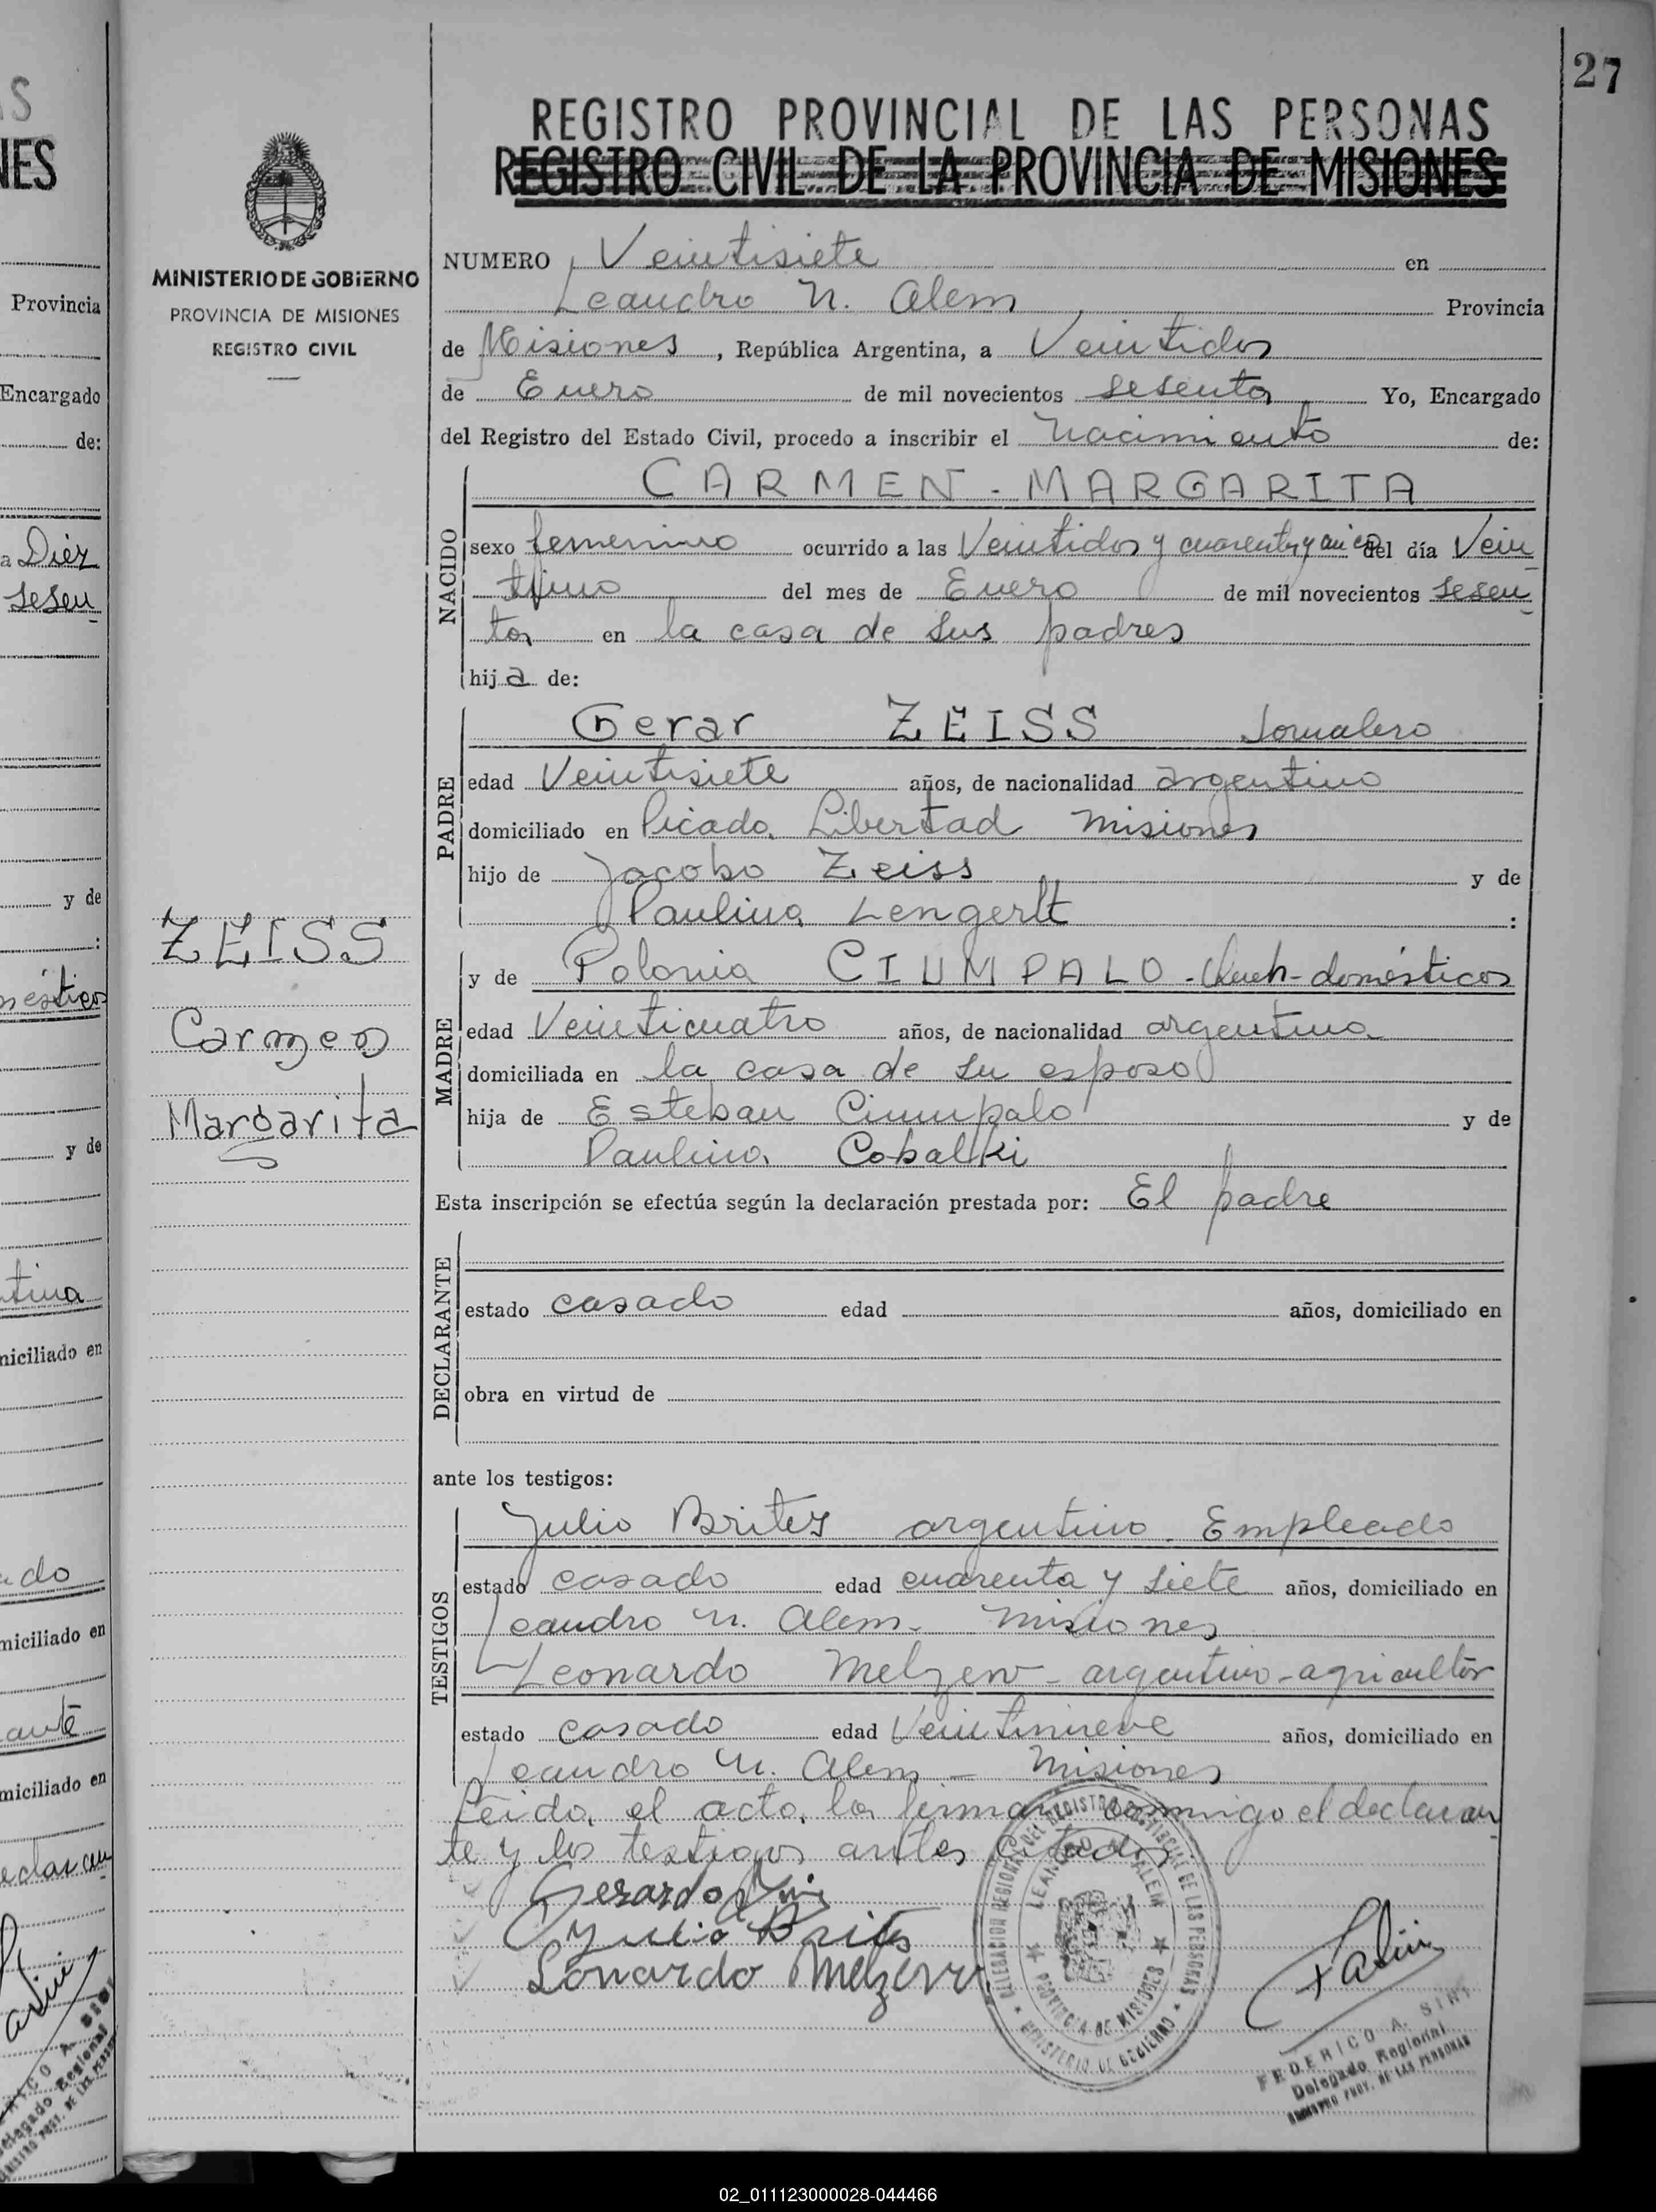 27
REGISTRO PROVINCIAL DE LAS PERSONAS
REGISTRO CIVIL DE LA PROVINCIA DE MISIONES
MINISTERIO DE GOBIERNO
PROVINCIA DE MISIONES
REGISTRO CIVIL
ZEISS
Carmen
Margarita
NUMERO Veintisiete en
Leandro N. Alem Provincia
de Misiones, República Argentina, a Veintidos
de Enero de mil novecientos sesenta Yo, Encargado
del Registro del Estado Civil, procedo a inscribir el Nacimiento de:
NACIDO
CARMEN - MARGARITA
sexo femenino ocurrido a las Veintidos y cuarenta y cinco del día Vein
tiuno del mes de Enero de mil novecientos sesen
ta en la casa de sus padres
hija de:
PADRE
Gerar ZEISS Jornalero
edad Veintisiete años, de nacionalidad argentino
domiciliado en Picada Libertad Misiones
hijo de Jacobo Zeiss y de
Paulina Lengerlt :
MADRE
y de Polonia CIUMPALO - Queh-domésticos
edad Veinticuatro años, de nacionalidad argentina
domiciliada en la casa de su esposo
hija de Esteban Ciumpalo y de
Paulina Cobalki
Esta inscripción se efectúa según la declaración prestada por: El padre
DECLARANTE
estado casado edad años, domiciliado en
obra en virtud de
ante los testigos:
TESTIGOS
Julio Britez argentino Empleado
estado casado edad cuarenta y siete años, domiciliado en
Leandro N. Alem - Misiones
Leonardo Melzew - argentino - agricultor
estado casado edad Veintinueve años, domiciliado en
Leandro N. Alem - Misiones
Leida el acta, la firman conmigo el declaran
te y los testigos antes citados
Gerardo
Yulio Brites
Lonardo Melzew
DELEGACION REGIONAL DEL REGISTRO PROVINCIAL DE LAS PERSONAS
LEANDRO N. ALEM
PROVINCIA DE MISIONES
MINISTERIO DE GOBIERNO
FEDERICO A.
Delegado Regional
REGISTRO PROV. DE LAS PERSONAS
02_011123000028-044466